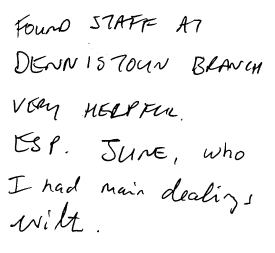 FOUND STAFF AT
DENNISTOUN BRANCH
VERY HELPFUL.
ESP. JUNE, who
I had main dealings
with.